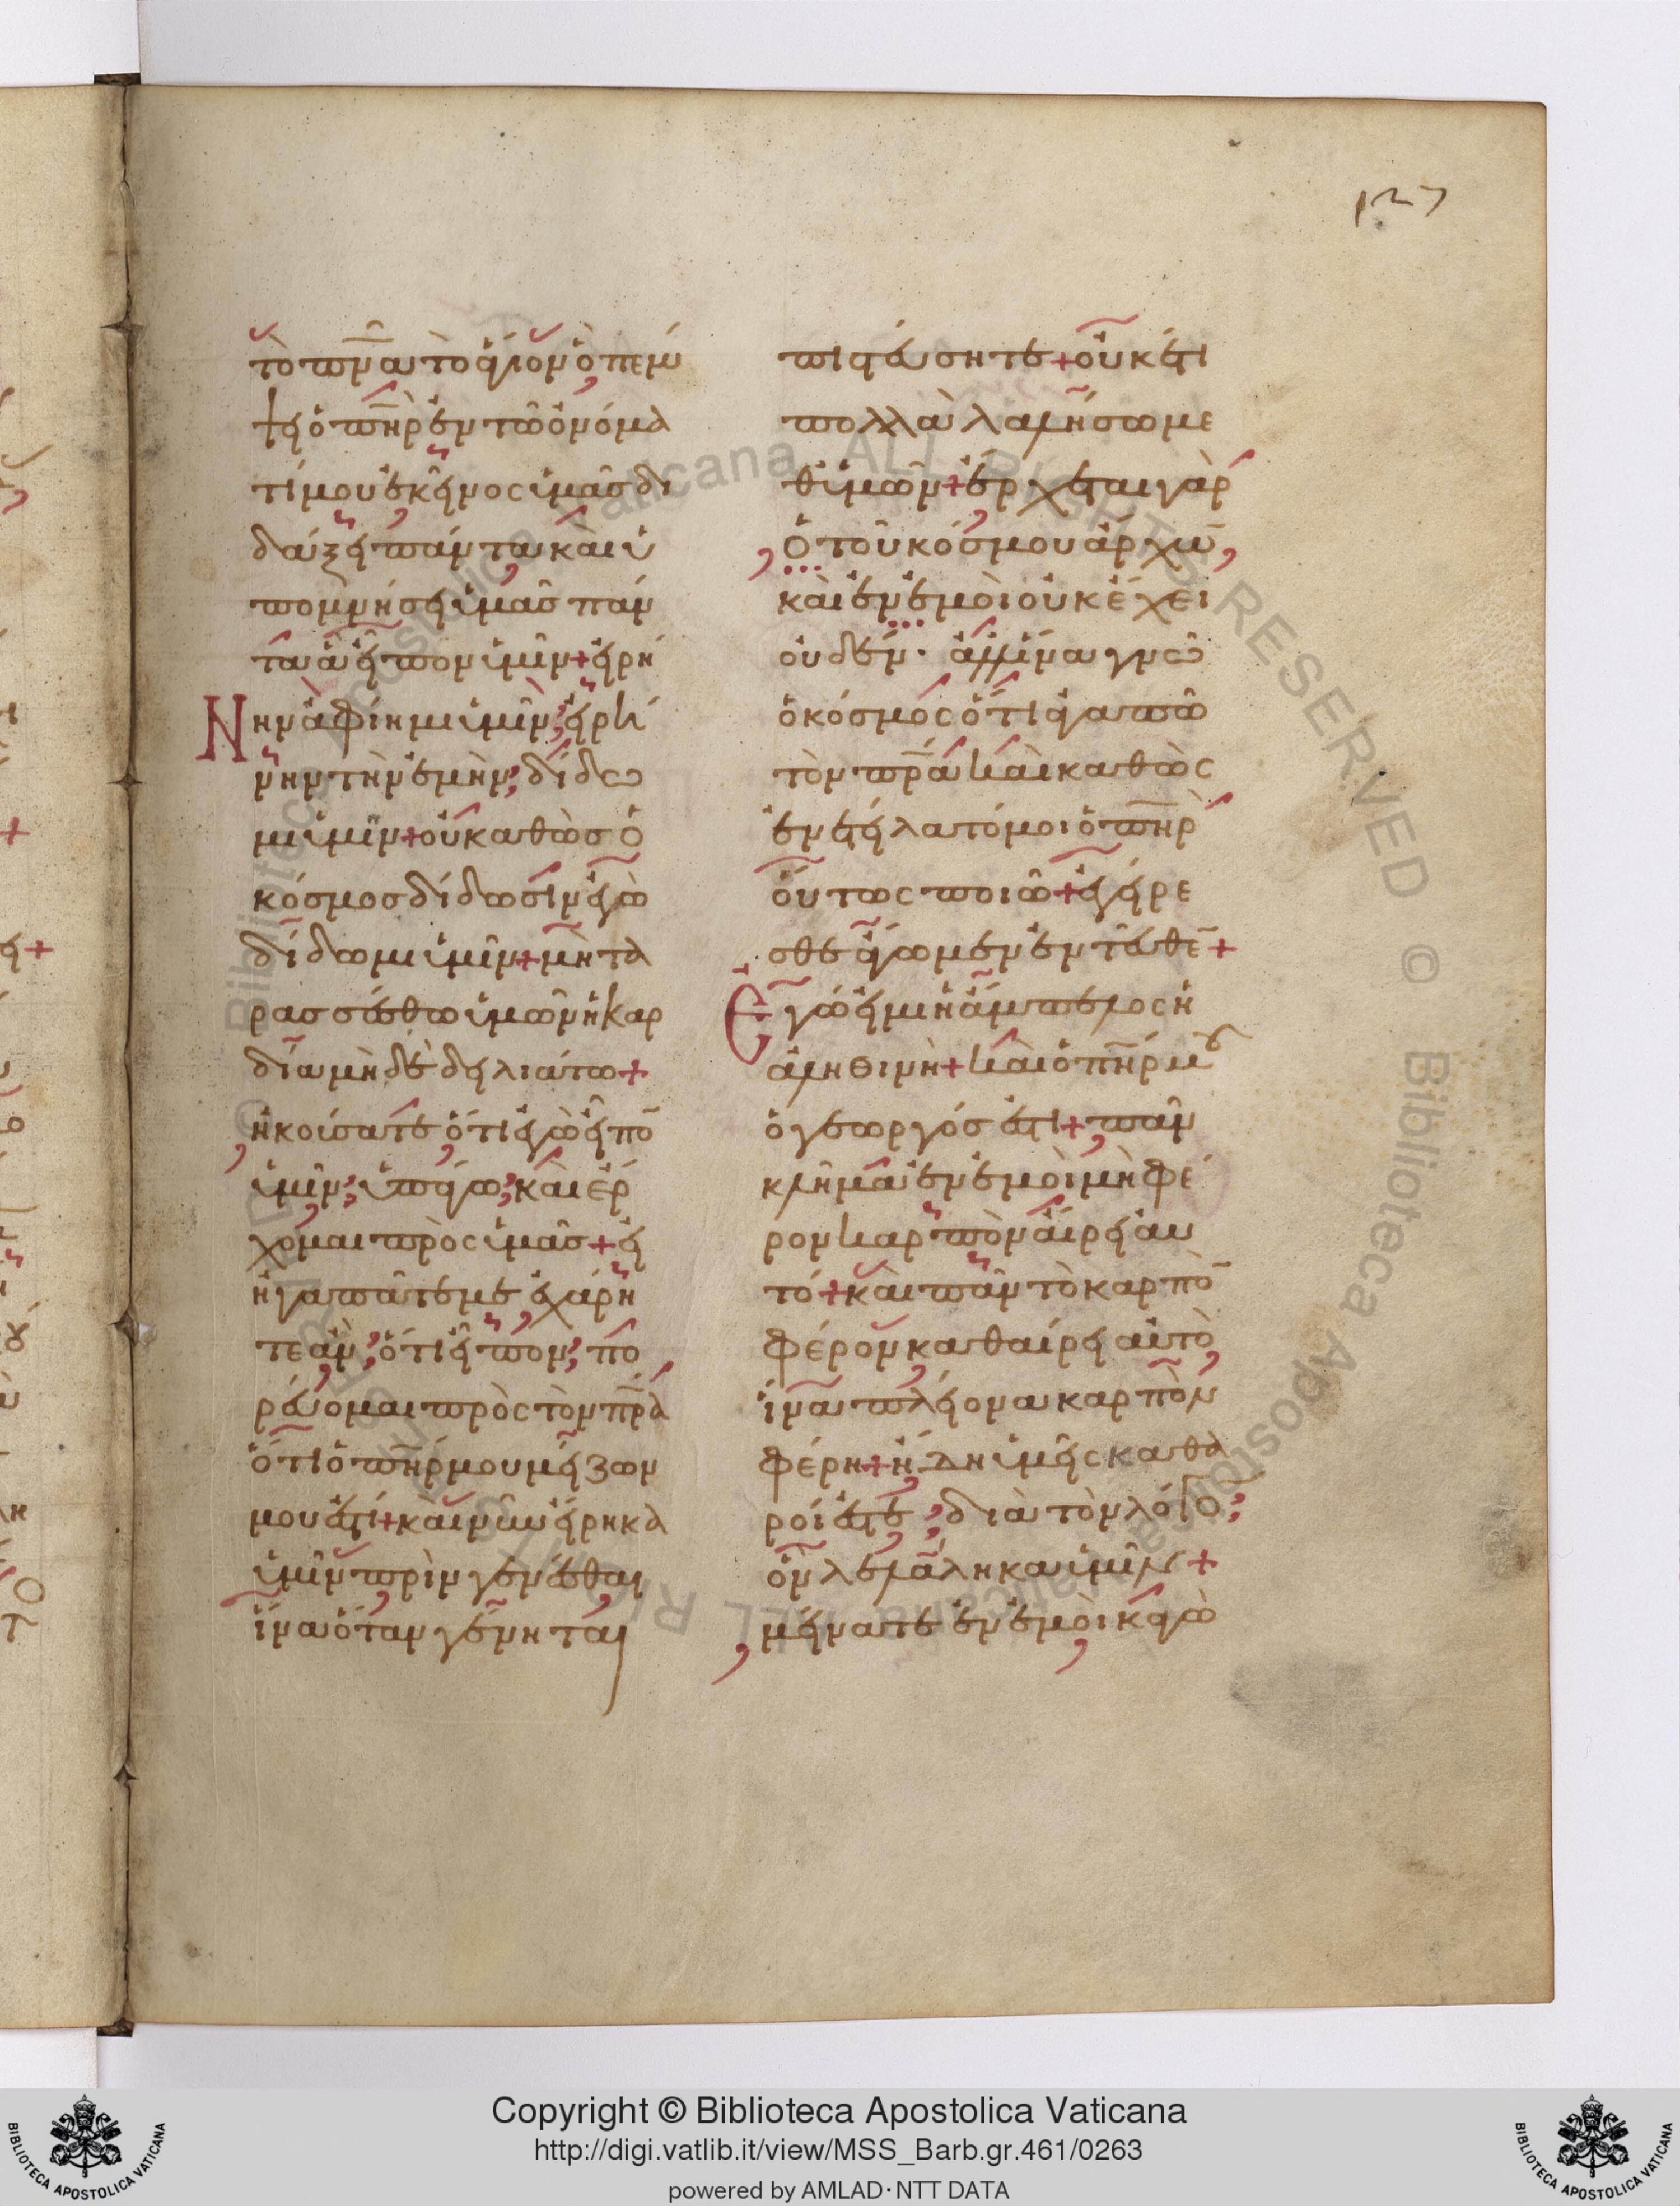 127
τὸ πν̅α τὸ ἅγιον ὃ πέμ
ψει ὁ πη̅ρ ἐν τῶ ὀνόμα
τί μου ἐκεῖνος ἡμᾶς δι
δάξει πάντα καὶ ὑ
πομνήσει ἡμᾶς πάν
τα ἃ εἶπον ἡμῖν + εἰρή
Νην ἀφίημι ἡμῖν; εἰρή
νην τὴν ἐμὴν; δίδω
μι ἡμῖν + οὐ καθὼς ὁ
κόσμος δίδωσιν ἐγὼ
δίδωμι ἡμῖν + μὴ τα
ρασσέσθω ἡμῶν ἡ καρ
δία μὴ δὲ δειλιάτω +
ἠκοίσατε ὅτι ἐγὼ εἶπο̅
ἡμῖν; ὑπάγω; καὶ ἔρ
χομαι πρὸς ἡμᾶς + εἰ
ἠγαπᾶτέ με ἐχάρη
τε ἂν; ὅτι εἶπον; πο
ρεύομαι πρὸς τὸν πρ̅α
ὅτι ὁ πη̅ρ μου μείζων
μου ἐστί + καὶ νῦν εἴρηκα
ἡμῖν πρὶν γενέσθαι
ἵνα ὅταν γένηται
πιστεύσητε + οὐκ ἔτι
πολλὰ λαλήσω με
θ ἡμῶν + ἔρχεται γὰρ
ὁ τοῦ κόσμου ἄρχω̅
καὶ ἐν ἐμοὶ οὐκ ἔχει
οὐδέν · ἀλλ ἵνα γνῶ
ὁ κόσμος ὅτι ἀγαπῶ
τὸν πρ̅α καὶ καθὼς
ἐνετείλατό μοι ὁ πη̅ρ
οὕτως ποιῶ + ἐγείρε
σθε ἄγωμεν ἐντεῦθε̅ +
Ἐγώ εἰμι ἡ ἄμπελος ἡ
ἀληθινὴ + καὶ ὁ πη̅ρ μου
ὁ γεωργός ἐστι + πᾶν
κλῆμα ἐν ἐμοὶ μὴ φέ
ρον καρπὸν αἴρει αυ
τό + καὶ πᾶν τὸ καρπὸ̅
φέρον καθαίρει αὐτὸ
ἵνα πλείονα καρπὸν
φέρη + ἤδη ἡμεῖς καθα
ροί ἐστε; διὰ τὸν λόγο̅;
ὃν λελάληκα ἡμῖν +
μείνατε ἐν ἐμοὶ κἀγὼ
Copyright © Biblioteca Apostolica Vaticana
http://digi.vatlib.it/view/MSS_Barb.gr.461/0263
powered by AMLAD·NTT DATA